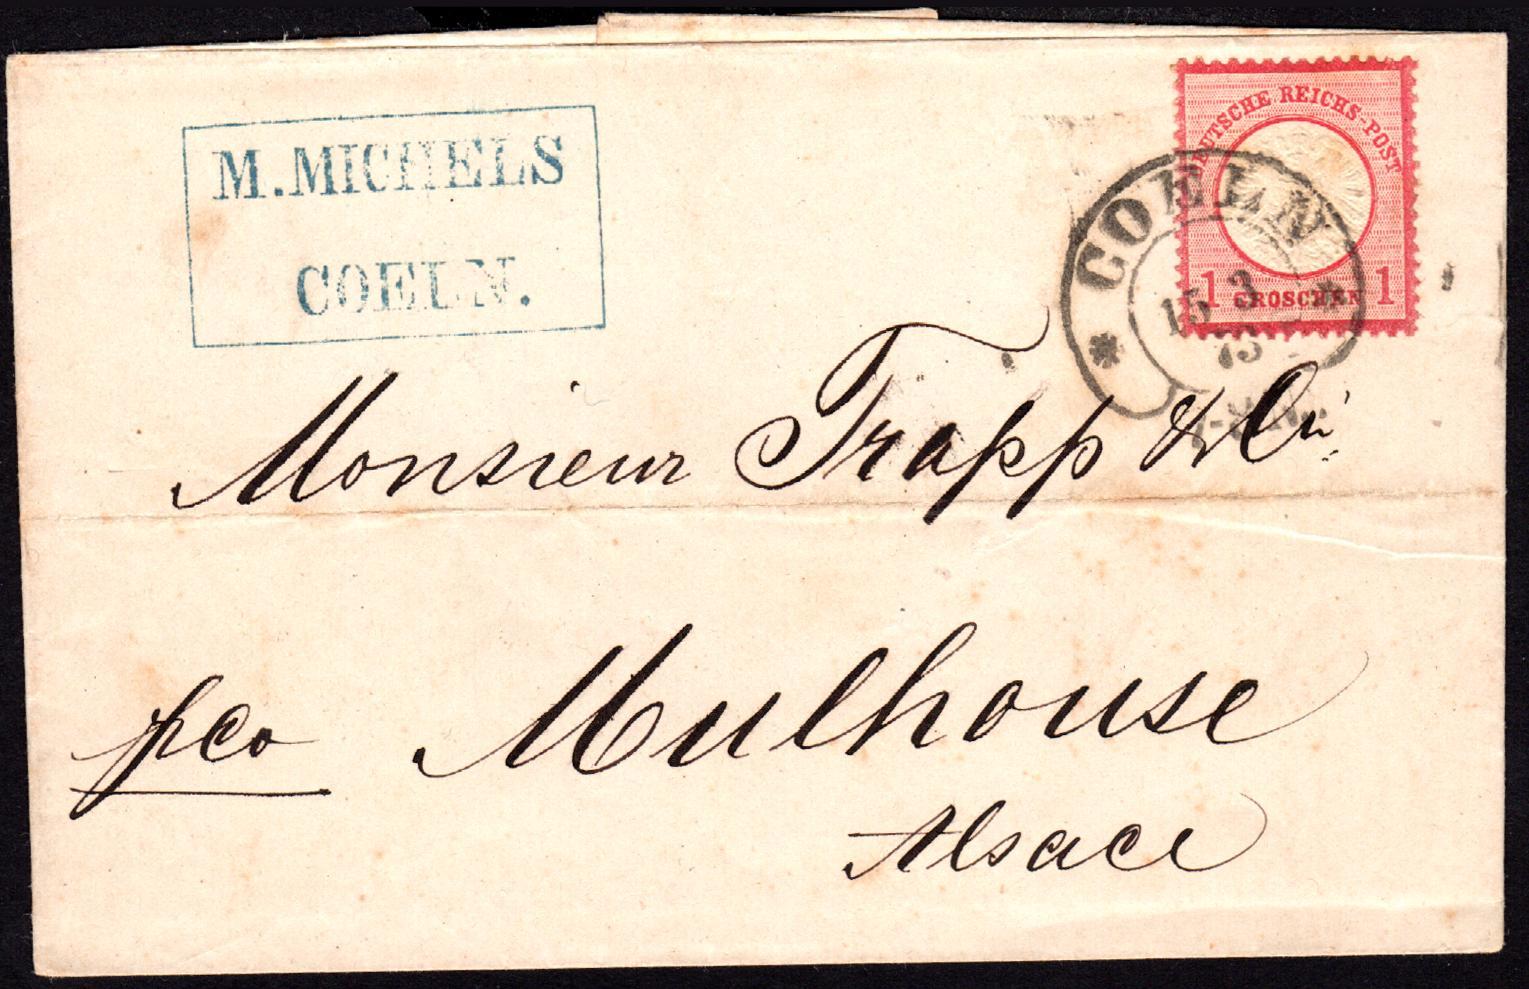 M. MICHELS
COELN.
DEUTSCHE REICHS-POST
1 GROSCHEN 1
COELN
15 3
73
Monsieur Trapp & Cie
pco Mulhouse
Alsace